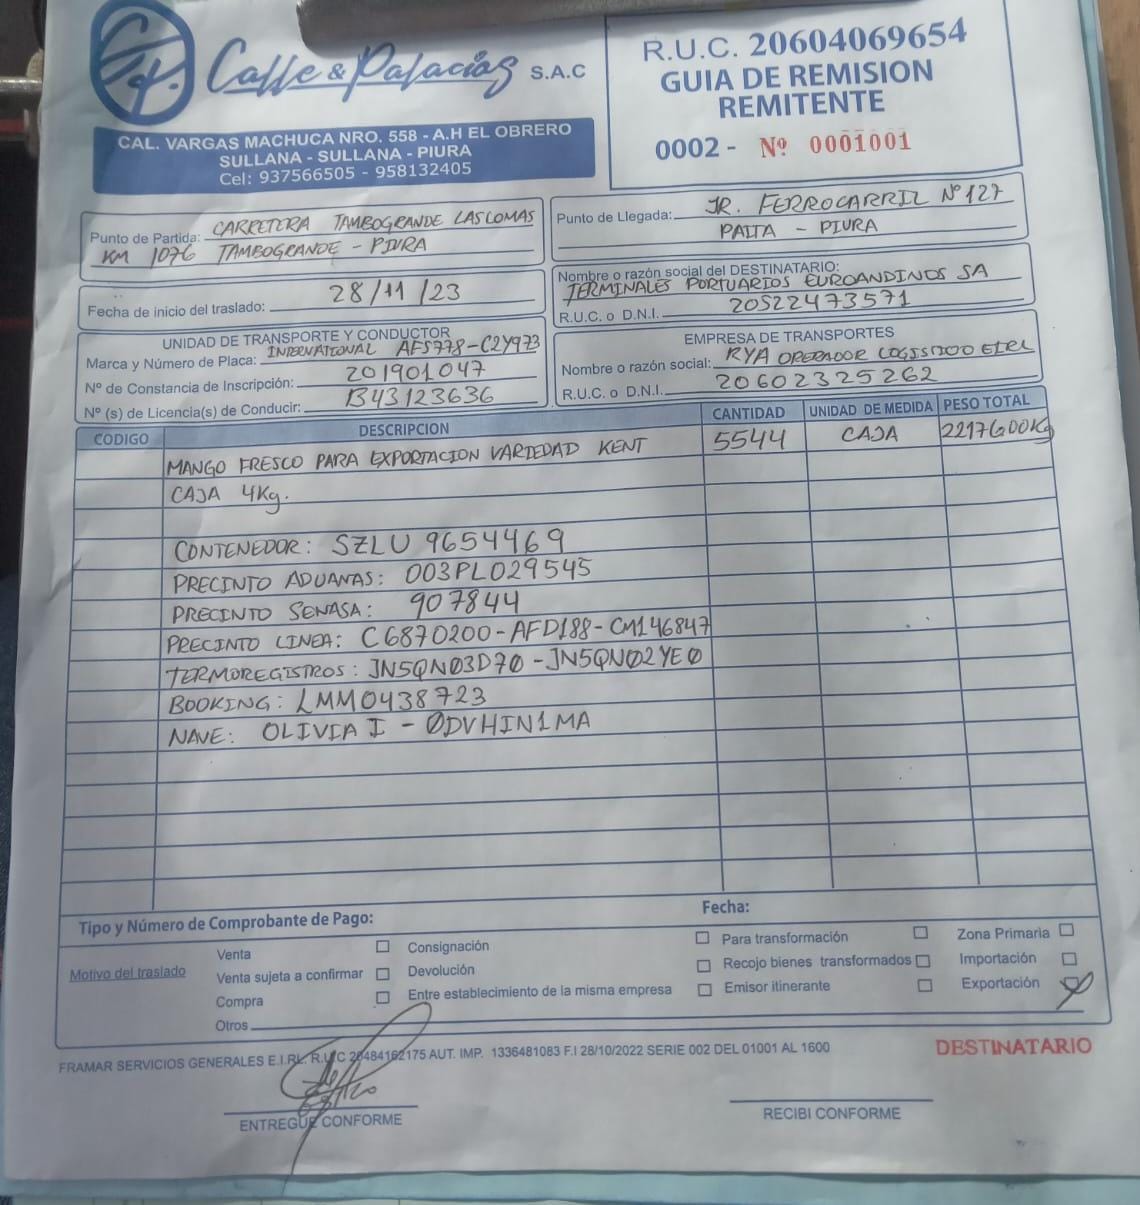 Calle & Palacios S.A.C
CAL. VARGAS MACHUCA NRO. 558 - A.H EL OBRERO
SULLANA - SULLANA - PIURA
Cel: 937566505 - 958132405
R.U.C. 20604069654
GUIA DE REMISION
REMITENTE
0002 - Nº 0001001
Punto de Partida: CARRETERA TAMBOGRANDE LAS LOMAS
KM 1076 TAMBOGRANDE - PIURA
Punto de Llegada: JR. FERROCARRIL Nº 127
PAITA - PIURA
Fecha de inicio del traslado: 28/11/23
Nombre o razón social del DESTINATARIO:
TERMINALES PORTUARIOS EUROANDINOS SA
R.U.C. o D.N.I. 20522473571
UNIDAD DE TRANSPORTE Y CONDUCTOR
Marca y Número de Placa: INTERNATIONAL AFS778-C2Y973
Nº de Constancia de Inscripción: 201901047
Nº (s) de Licencia(s) de Conducir: B43123636
EMPRESA DE TRANSPORTES
Nombre o razón social: RYA OPERADOR LOGISTICO EIRL
R.U.C. o D.N.I. 20602325262
CODIGO DESCRIPCION CANTIDAD UNIDAD DE MEDIDA PESO TOTAL
MANGO FRESCO PARA EXPORTACION VARIEDAD KENT 5544 CAJA 22176.00Kg
CAJA 4Kg.
CONTENEDOR: SZLU 9654469
PRECINTO ADUANAS: 003PL029545
PRECINTO SENASA: 907844
PRECINTO LINEA: C6870200-AFD188-CM146847
TERMOREGISTROS: JN5QN03D70-JN5QN02YE0
BOOKING: LMM0438723
NAVE: OLIVIA I - 0DVHIN1MA
Tipo y Número de Comprobante de Pago: Fecha:
Motivo del traslado
Venta
Venta sujeta a confirmar
Compra
Otros
Consignación
Devolución
Entre establecimiento de la misma empresa
Para transformación
Recojo bienes transformados
Emisor itinerante
Zona Primaria
Importación
Exportación
FRAMAR SERVICIOS GENERALES E.I.RL. R.U.C 20484162175 AUT. IMP. 1336481083 F.I 28/10/2022 SERIE 002 DEL 01001 AL 1600
DESTINATARIO
ENTREGUE CONFORME
RECIBI CONFORME